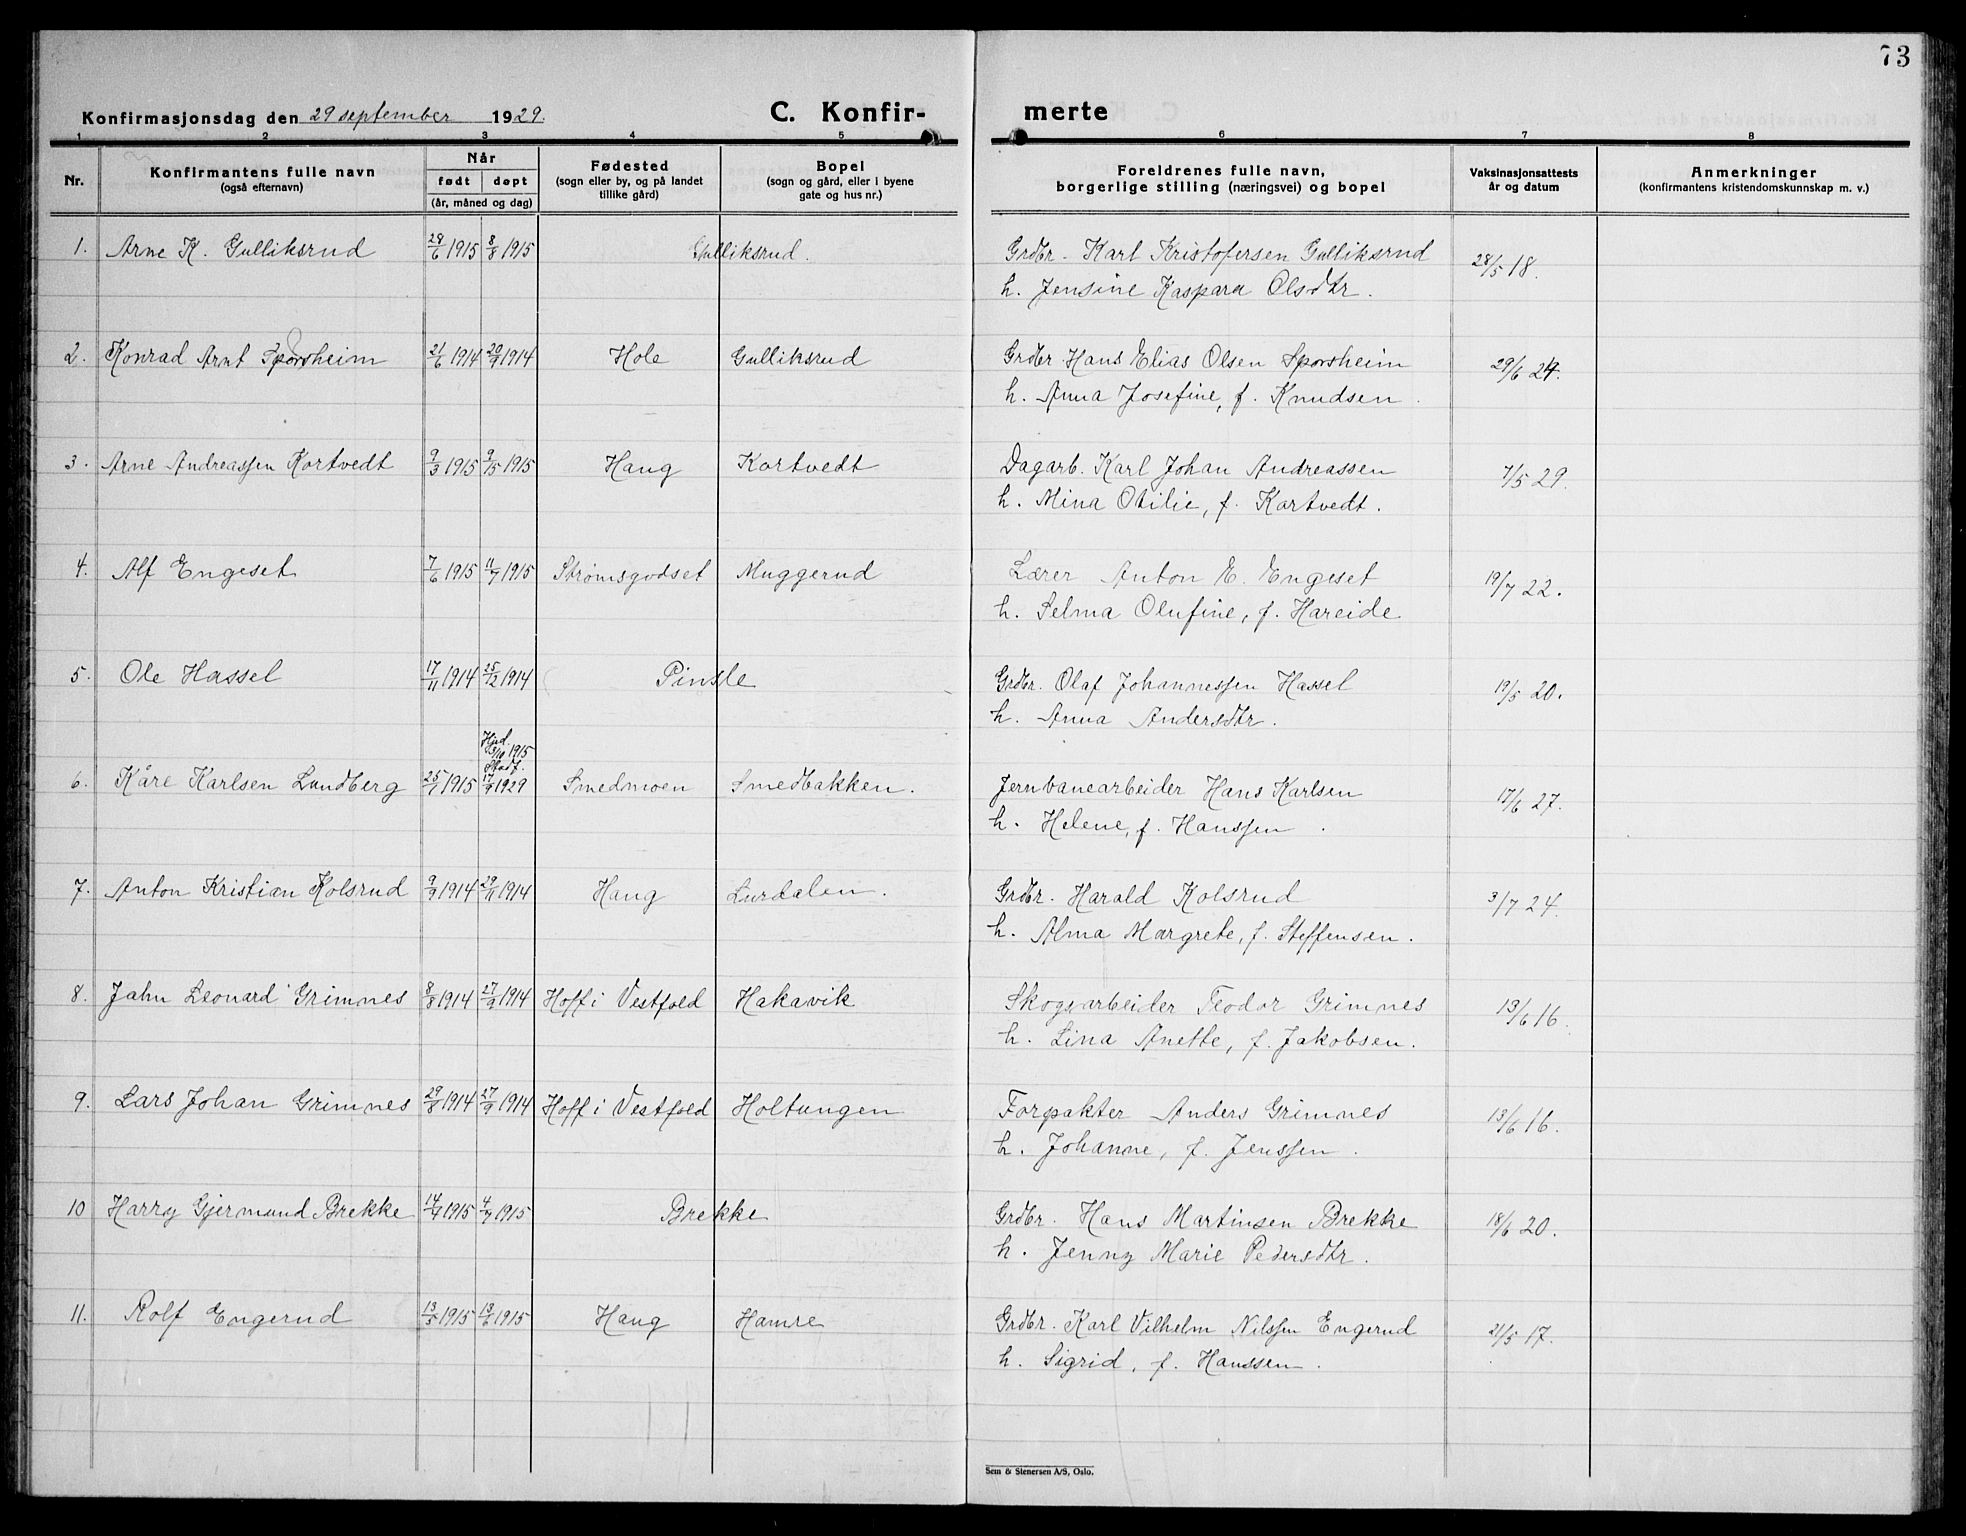 73
Konfirmasjonsdag den 29 september 1929.
C. Konfir- merte
1 2 3 4 5 6 7 8
Nr.
Konfirmantens fulle navn
(også efternavn)
Når
født døpt
(år, måned og dag)
Fødested
(sogn eller by, og på landet
tillike gård)
Bopel
(sogn og gård, eller i byene
gate og hus nr.)
Foreldrenes fulle navn,
borgerlige stilling (næringsvei) og bopel
Vaksinasjonsattests
år og datum
Anmerkninger
(konfirmantens kristendomskunnskap m. v.)
1. Arne K. Gulliksrud 28/6 1915 8/8 1915 Gulliksrud. Grdbr. Karl Kristofersen Gulliksrud 28/5 18.
h. Jensine Kaspara Olsdtr.
2. Konrad Arnt Sporsheim 21/6 1914 20/9 1914 Hole Gulliksrud Grdbr. Hans Elias Olsen Sporsheim 29/6 24.
h. Anna Josefine, f. Knudsen.
3. Arne Andreassen Kortvedt 9/3 1915 9/5 1915 Haug Kortvedt Dagarb. Karl Johan Andreassen 7/5 29.
h. Mina Otilie, f. Kortvedt.
4. Alf Engeset 7/6 1915 11/7 1915 Strømsgodset Muggerud Lærer Anton E. Engeset 19/7 22.
h. Selma Olufine, f. Hareide
5. Ole Hassel 17/11 1914 25/12 1914 Pinsle Grdbr. Olaf Johannessen Hassel 19/5 20.
h. Anna Andersdtr.
Hjd.
3/10 1915
Stadf.
6. Kåre Karlsen Lundberg 25/7 1915 17/9 1929 Smedmoen Smedbakken. Jernbanearbeider Hans Karlsen 17/6 27.
h. Helene, f. Hanssen.
7. Anton Kristian Kolsrud 9/9 1914 29/11 1914 Haug Lurdalen. Grdbr. Harald Kolsrud 3/7 24.
h. Alma Margrete, f. Steffensen.
8. Jahn Leonard Grimnes 8/8 1914 27/9 1914 Hoff i Vestfold Hakavik Skogsarbeider Teodor Grimnes 13/6 16.
h. Lina Anette, f. Jakobsen.
9. Lars Johan Grimnes 29/8 1914 27/9 1914 Hoff i Vestfold Holtungen Forpakter Anders Grimnes 13/6 16.
h. Johanne, f. Jenssen.
10 Harry Gjermund Brekke 1915 4/7 1915 Brekke Grdbr. Hans Martinsen Brekke 18/6 20.
h. Jenny Marie Pedersdtr.
11. Rolf Engerud 13/5 1915 13/6 1915 Haug Hamre Grdbr. Karl Vilhelm Nilssen Engerud 21/5 17.
h. Sigrid, f. Hanssen.
Sem & Stenersen A/S, Oslo.